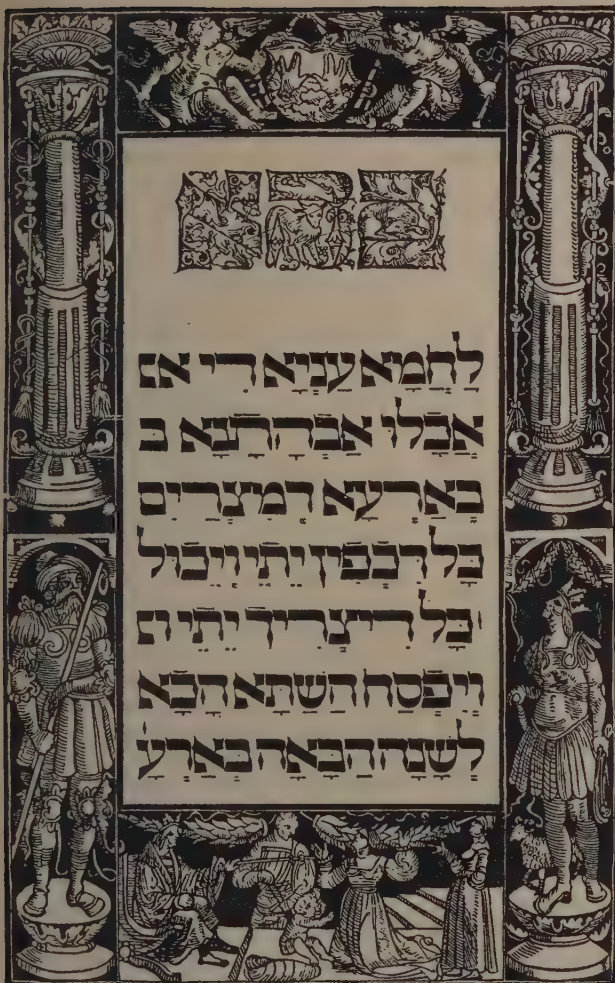 כהא
לַחְמָא עַנְיָא דִי אכ
אֲכָלוּ אַבְהָתָנָא ב
בְּאַרְעָא דְמִצְרַיִם
כָּל דִכְפִין יֵתֵי וְיֵכוּל
כָּל דִיצְרִיךְ יֵתֵי וי
וְיִפְסַח הָשַׁתָּא הָכָא
לַשָׁנָה הַבָּאָה בְּאַרְעָ